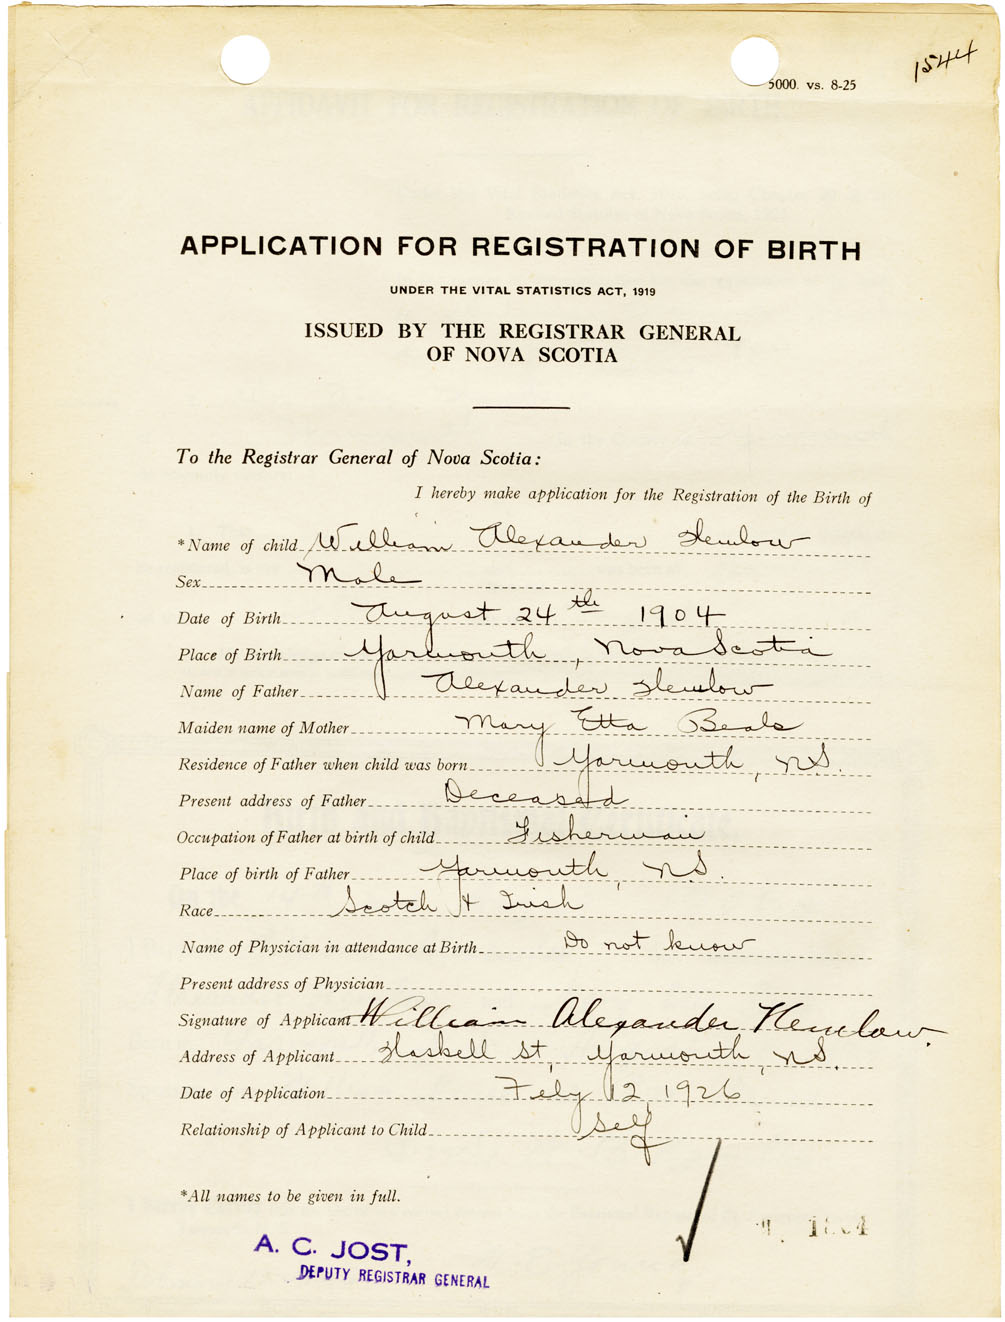 1544
5000. vs. 8-25
APPLICATION FOR REGISTRATION OF BIRTH
UNDER THE VITAL STATISTICS ACT, 1919
ISSUED BY THE REGISTRAR GENERAL
OF NOVA SCOTIA
To the Registrar General of Nova Scotia:
I hereby make application for the Registration of the Birth of
*Name of child William Alexander Hemlow
Sex Male
Date of Birth August 24th 1904
Place of Birth Yarmouth, Nova Scotia
Name of Father Alexander Hemlow
Maiden name of Mother Mary Etta Beals
Residence of Father when child was born Yarmouth, N.S.
Present address of Father Deceased
Occupation of Father at birth of child Fisherman
Place of birth of Father Yarmouth, N.S.
Race Scotch + Irish
Name of Physician in attendance at Birth Do not know
Present address of Physician
Signature of Applicant William Alexander Hemlow.
Address of Applicant Haskell St, Yarmouth, N.S.
Date of Application Feby 12, 1926
Relationship of Applicant to Child Self
*All names to be given in full.
A. C. JOST,
DEPUTY REGISTRAR GENERAL